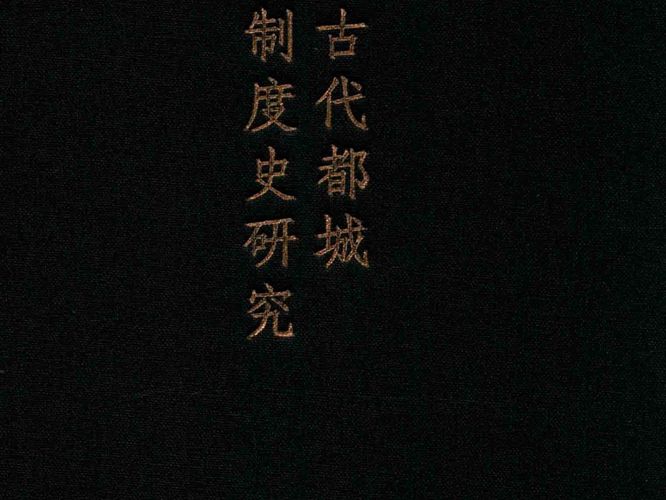 古代都城
制度史研究